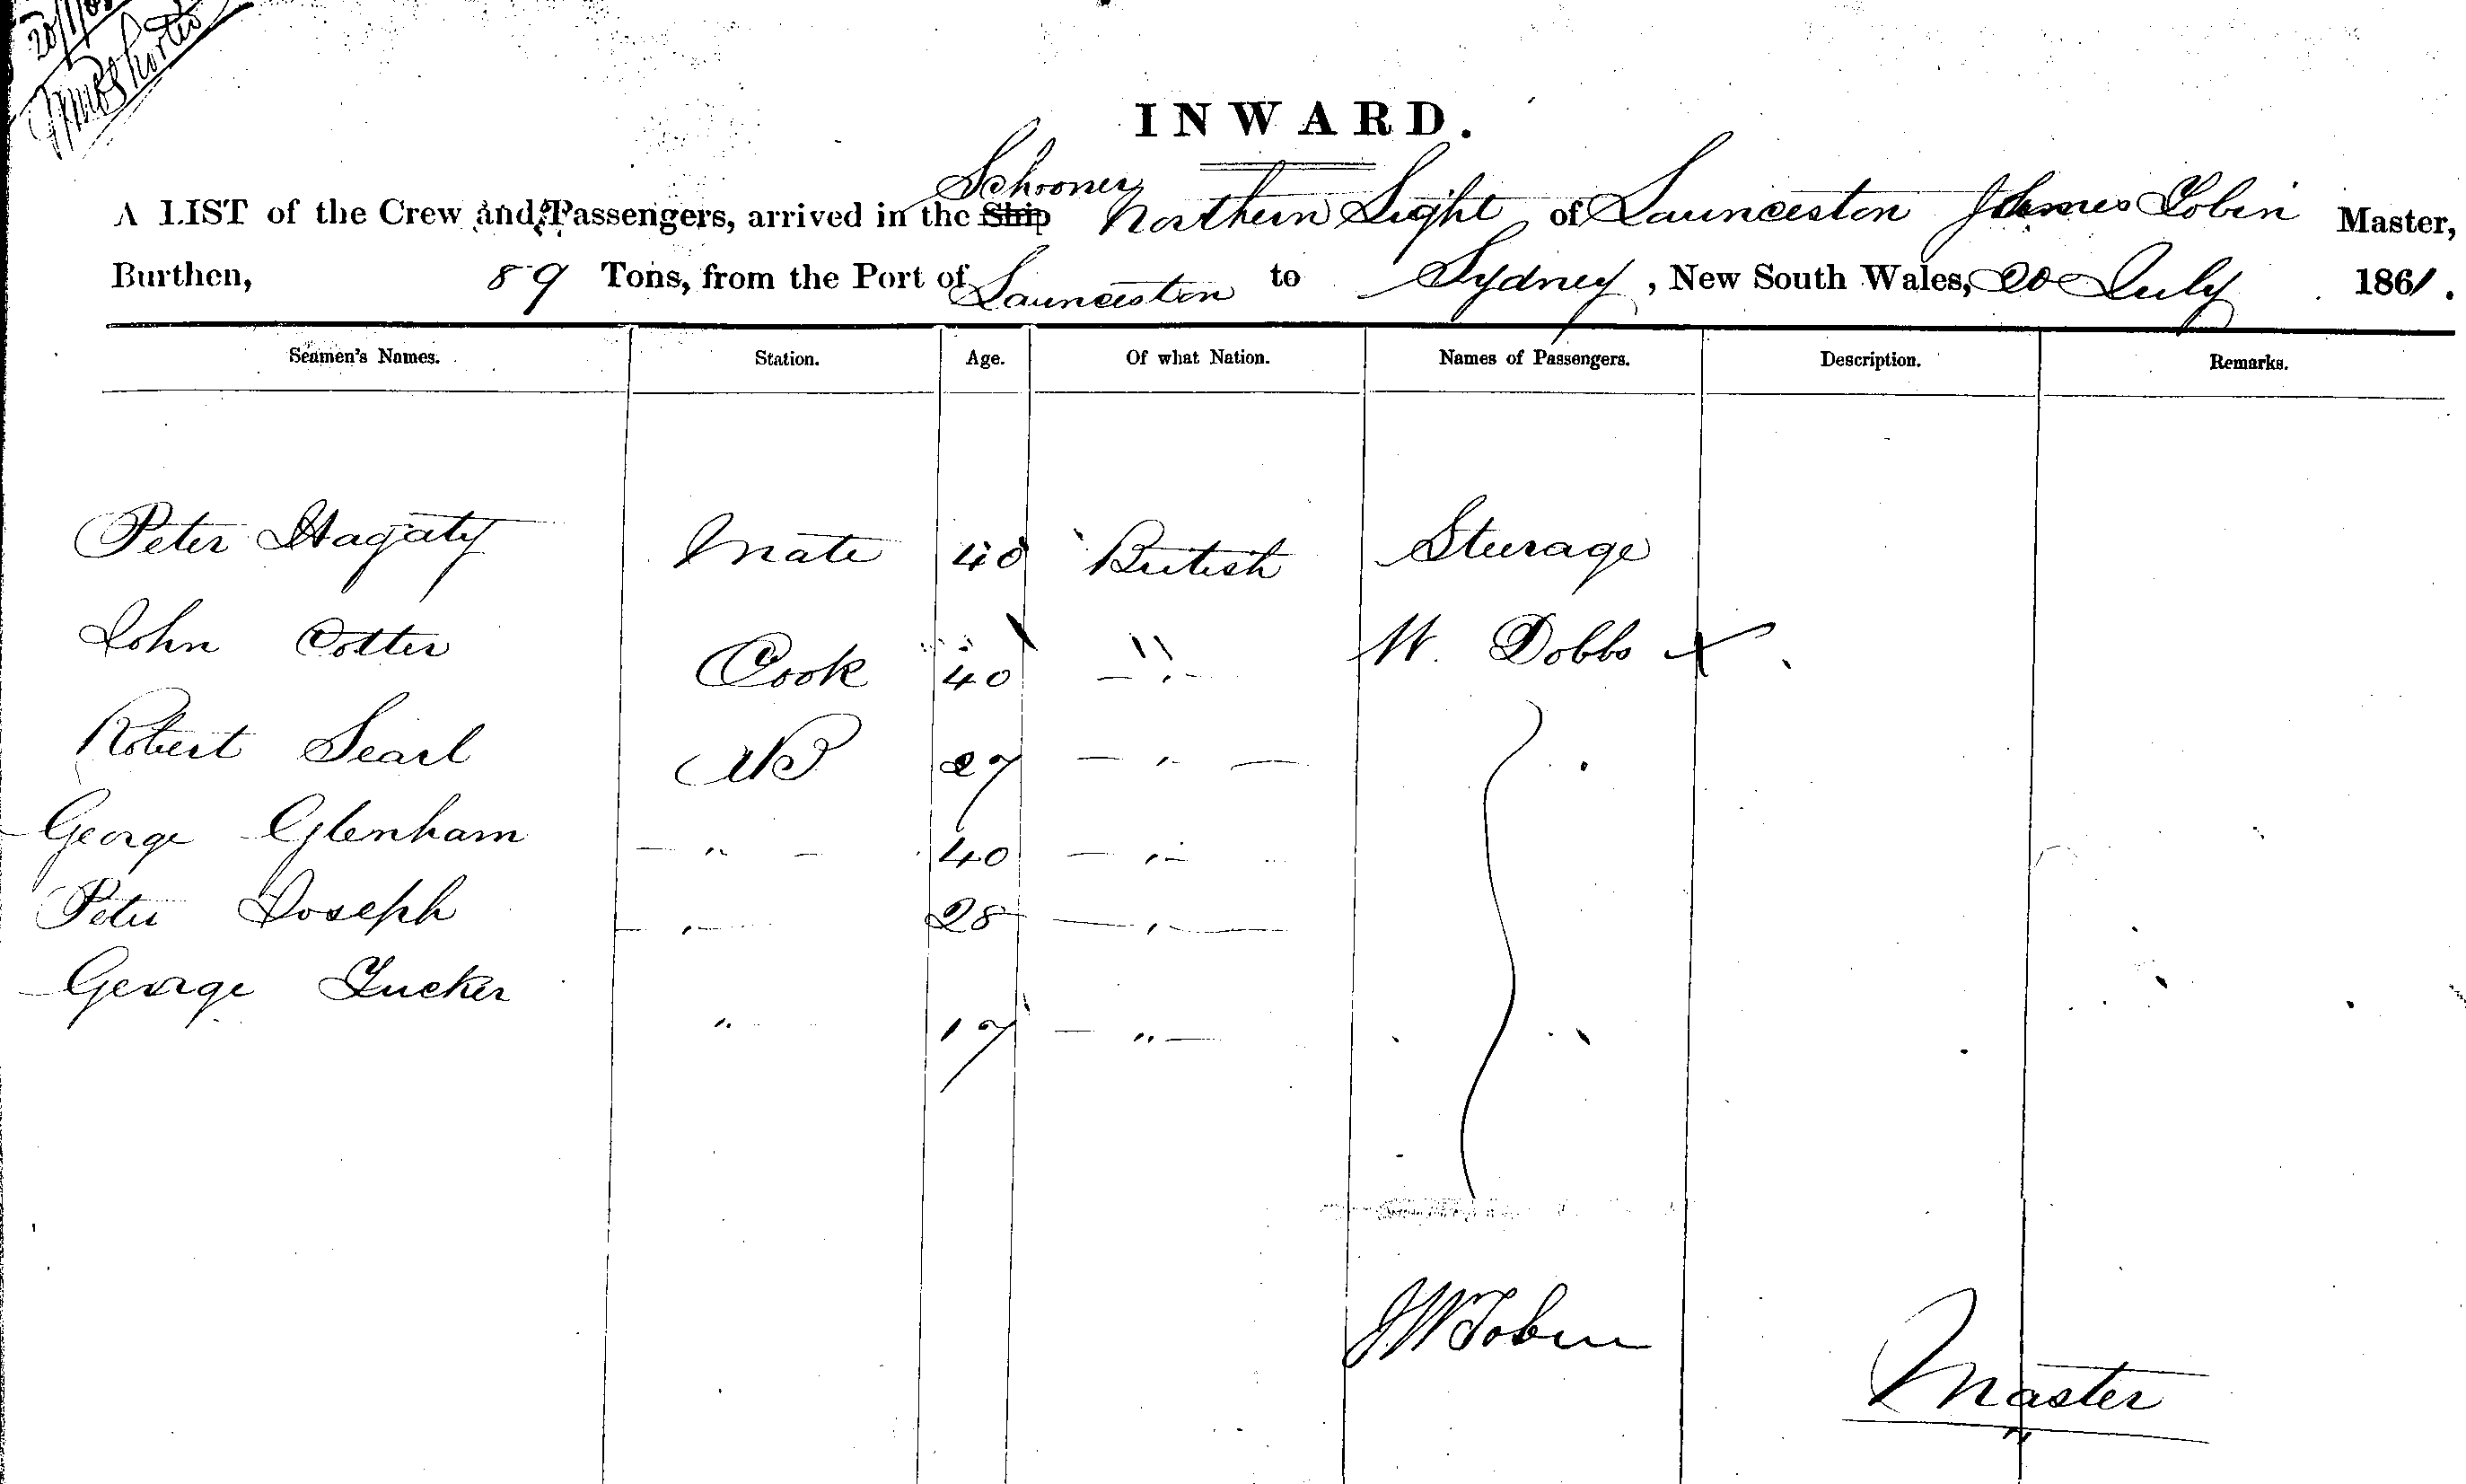 INWARD.
Schooner
A LIST of the Crew and Passengers, arrived in the Ship Northern Light of Launceston James Tobin Master,
Burthen, 89 Tons, from the Port of Launceston to Sydney, New South Wales, 20 July 1861.
Seamen's Names. Station. Age. Of what Nation. Names of Passengers. Description. Remarks.
Peter Hagaty Mate 40 British Sturage
John Cotter Cook 40 " W. Dobbs
Robert Searl AB 27 "
George Glenham " 40 "
Peter Joseph " 28 "
George Tucker " 17 "
JW Tobin
Master